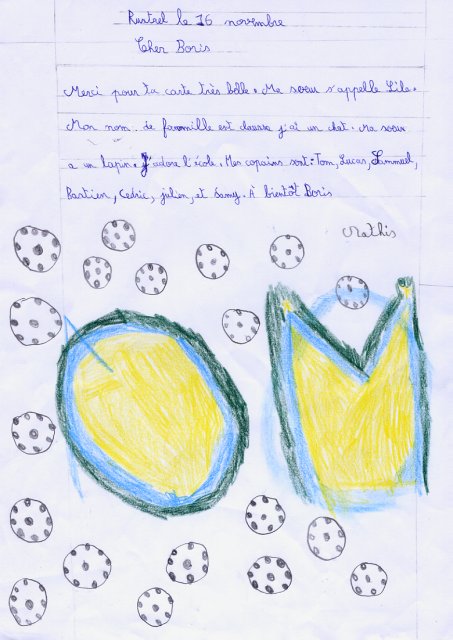 Rustrel le 16 novembre
Cher Boris
Merci pour ta carte très belle. Ma soeur s'appelle Lile.
Mon nom de fammille est clausse j'ai un chat. Ma soeur
a un lapin. J'adore l'école. Mes copains sont: Tom, Lucas, Sammuel,
Bastien, Cedric, julien, et Samy. A bientôt Boris
Mathis